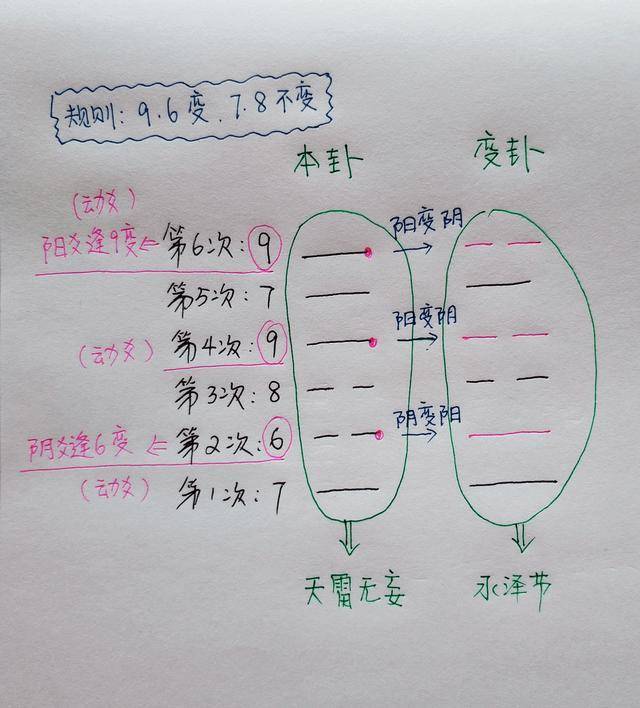 规则：9.6变，7.8不变
本卦
变卦
(动爻)
阳爻逢9变⇐第6次：9
阳变阴
第5次：7
(动爻)
第4次：9
阳变阴
第3次：8
阴爻逢6变⇐第2次：6
阴变阳
(动爻)
第1次：7
天雷无妄
水泽节